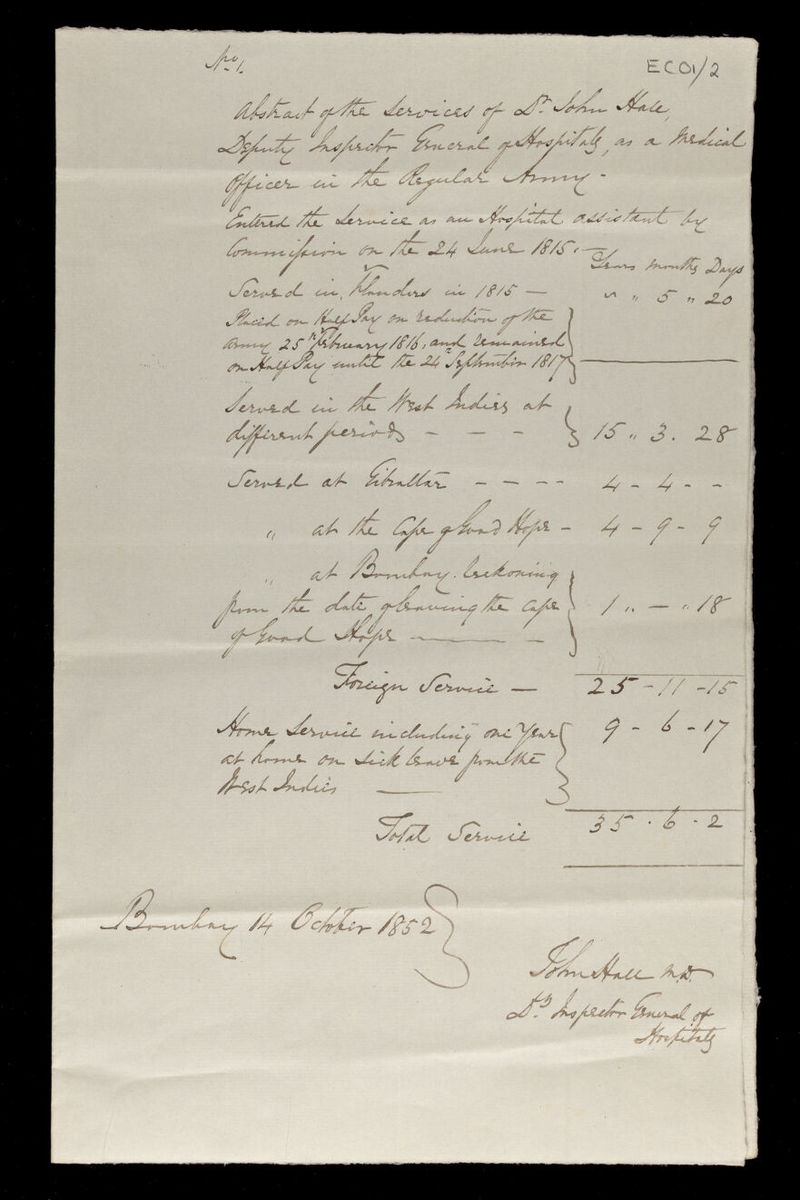 No. 1.
ECO1/2
Abstract of the Services of Dr. John Hall,
Deputy Inspector General of Hospitals, as a Medical
Officer in the Regular Army -
Entered the Service as an Hospital assistant by
Commission on the 24 June 1815. —
Years months Days
Served in Flanders in 1815 — " " 5 " 20
Placed on Half Pay on reduction of the
army 25th February 1816, and remained
on Half Pay until the 24 September 1817
Served in the West Indies at
different periods - - - 15 " 3 . 28
Served at Gibraltar - - - - 4 - 4 - -
" at the Cape of Good Hope - 4 - 9 - 9
" at Bombay. reckoning
from the date of leaving the Cape
of Good Hope — - 1 " — " 18
Foreign Service — 25 - 11 - 15
Home Service including one Year 9 - 6 - 17
at home on sick leave from the
West Indies —
Total Service 35 . 6 . 2
Bombay 14 October 1852
John Hall M.D.
Dy. Inspector General of
Hospitals